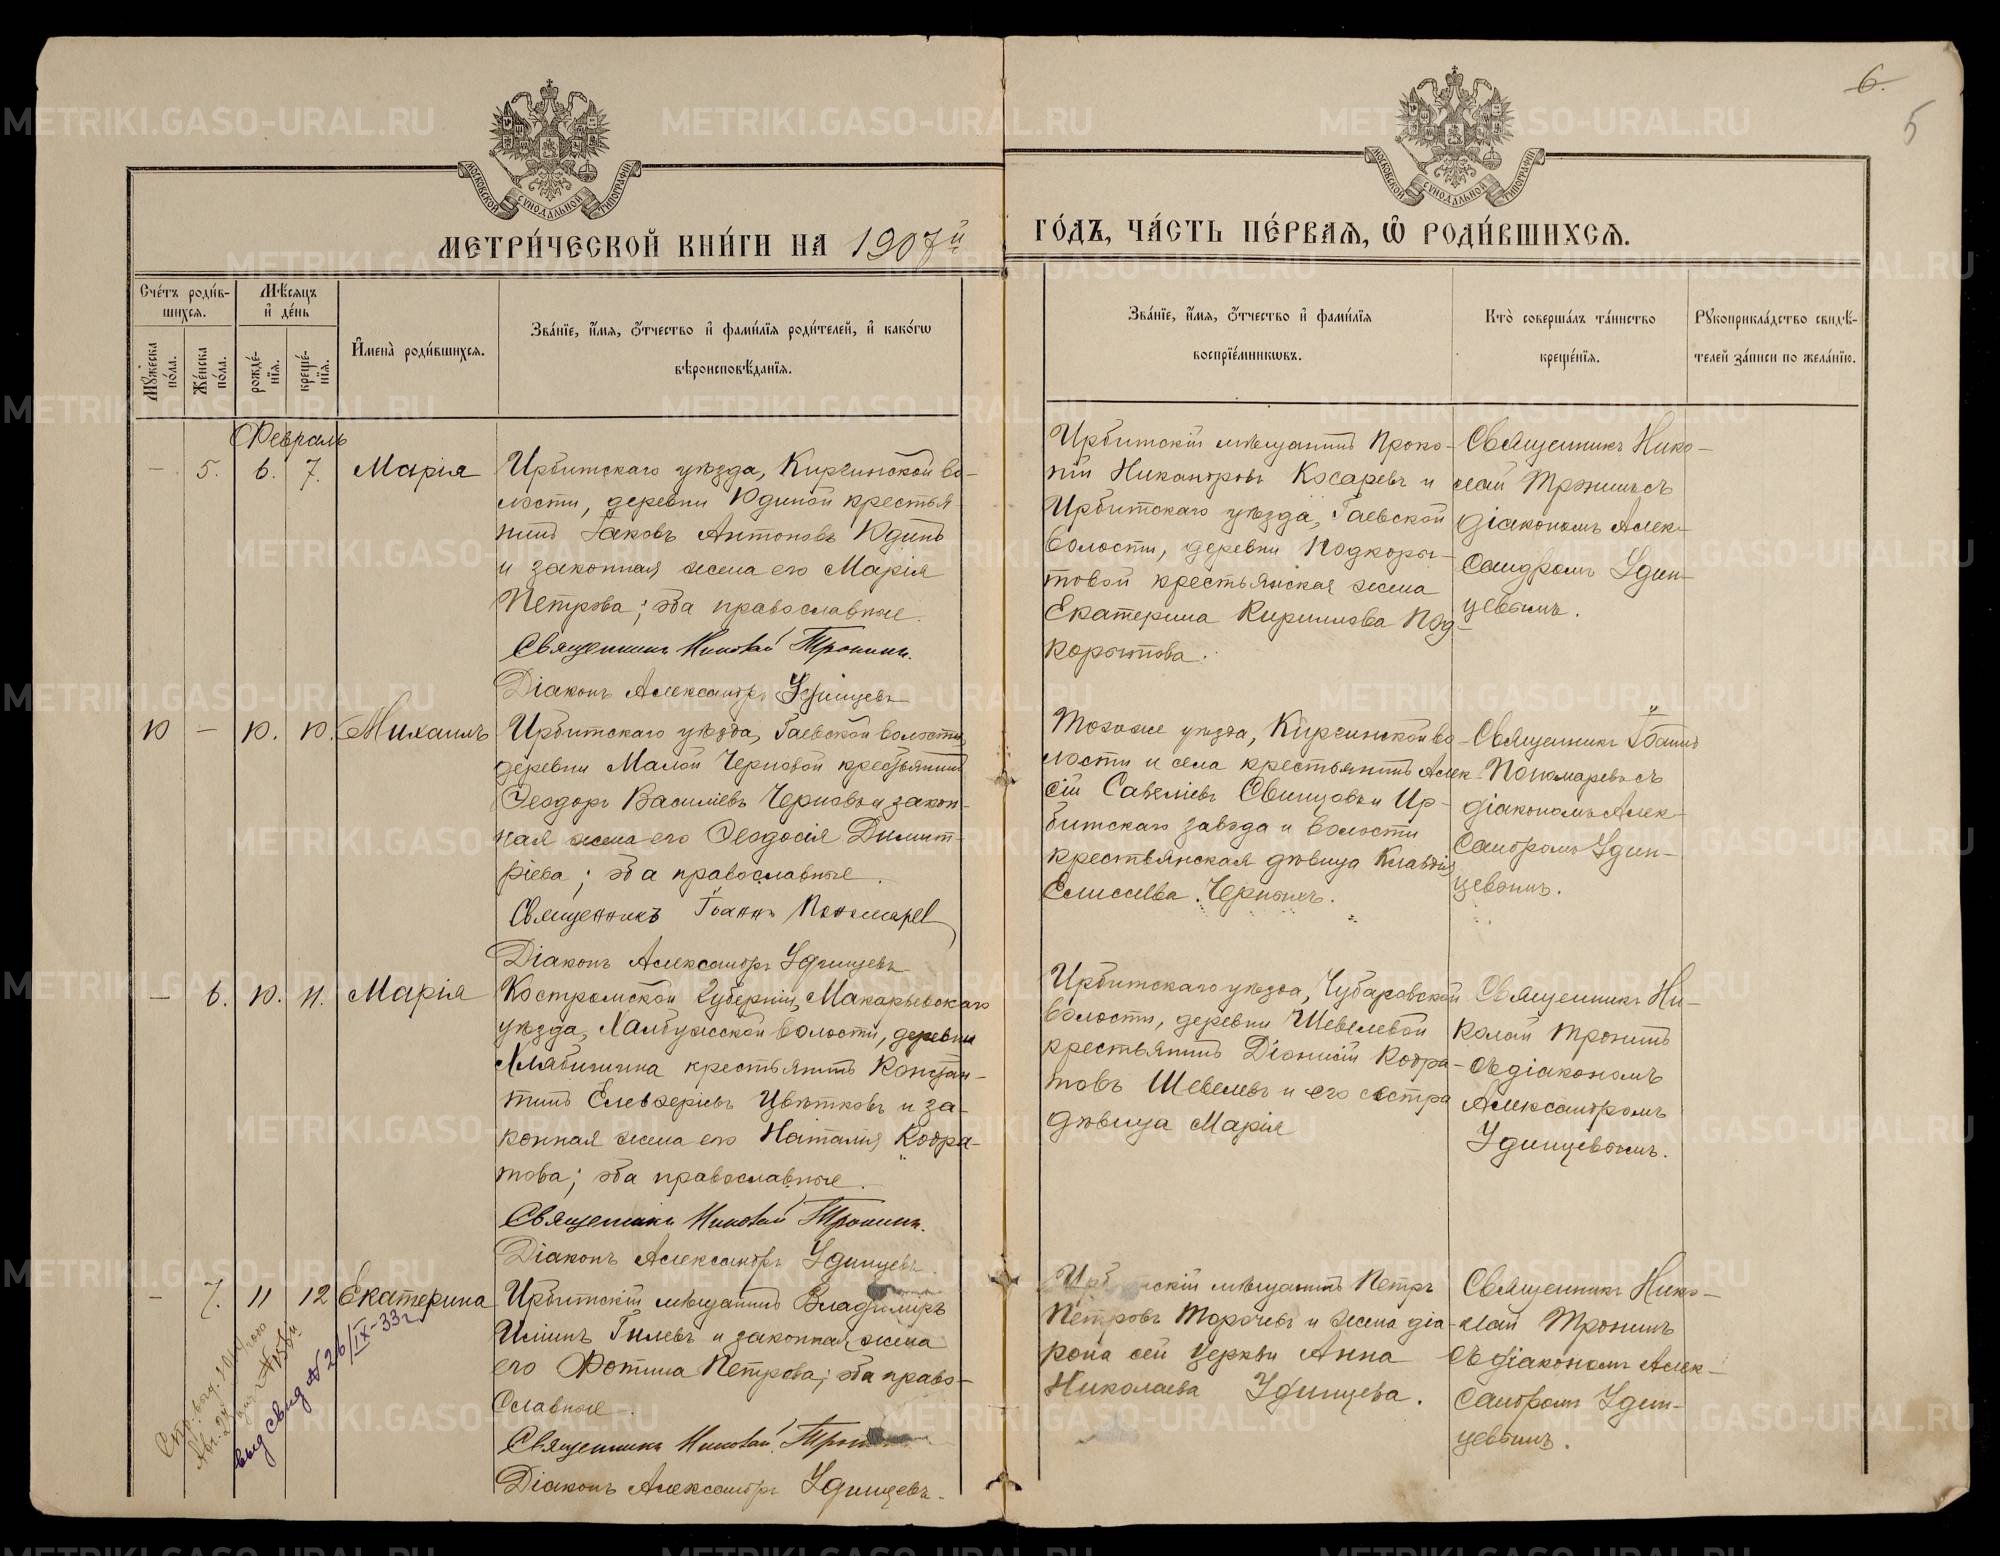 6.
5
МОСКОВСКОЙ СѴНОДАЛЬНОЙ ТИПОГРАФІИ
МОСКОВСКОЙ СѴНОДАЛЬНОЙ ТИПОГРАФІИ
МЕТРИ́ЧЕСКОЙ КНИ́ГИ НА 1907й
ГО́ДЪ, ЧА́СТЬ ПЕ́РВАѦ, Ѿ РОДИ́ВШИХСѦ.
Сче́тъ роди́вшихсѧ.
Мꙋ́жеска по́ла.
Же́нска по́ла.
Мѣ́сѧцъ и҆ де́нь
рожде́нїѧ.
креще́нїѧ.
И҆мена̀ роди́вшихсѧ.
Зва́нїе, и҆́мѧ, ѻ҆́тчество и҆ фами́лїѧ роди́телей, и҆ како́гѡ
вѣроисповѣ́данїѧ.
Зва́нїе, и҆́мѧ, ѻ҆́тчество и҆ фами́лїѧ
воспрїе́мникѡвъ.
Кто̀ соверша́лъ та́инство
креще́нїѧ.
Рꙋкоприкла́дство свидѣ́-
телей за́писи по жела́нїю.
Февраль
– 5. 6. 7. Марія
Ирбитскаго уѣзда, Киргинской во-
лости, деревни Юдиной крестья-
нинъ Іаковъ Антоновъ Юдинъ
и законная жена его Марія
Петрова; оба православные.
Священникъ Николай Тронинъ.
Діаконъ Александръ Удинцевъ
Ирбитскій мѣщанинъ Проко-
пій Никаноровъ Косаревъ и
Ирбитскаго уѣзда, Гаевской
волости, деревни Подкоры-
товой крестьянская жена
Екатерина Кириллова Под-
корытова.
Священникъ Нико-
лай Тронинъ съ
діакономъ Алек-
сандромъ Удин-
цевымъ.
10 – 10. 10. Михаилъ
Ирбитскаго уѣзда, Гаевской волости,
деревни Малой Черновой крестьянинъ
Ѳеодоръ Василіевъ Черновъ и закон-
ная жена его Ѳеодосія Димит-
ріева; оба православные.
Священникъ Іоаннъ Пономарев
Діаконъ Александръ Удинцевъ
Тогоже уѣзда, Киргинской во-
лости и села крестьянинъ Алек-
сій Савеліевъ Свинцовъ и Ир-
битскаго завода и волости
крестьянская дѣвица Клавдія
Елисеева Черныхъ.
Священникъ Іоаннъ
Пономаревъ съ
діакономъ Алек-
сандромъ Удин-
цевымъ.
– 6. 10. 11. Марія
Костромской губерніи, Макарьевскаго
уѣзда, Халбужской волости, деревни
крестьянинъ Констан-
тинъ Елевѳеріевъ Цвѣтковъ и за-
конная жена его Наталія Кодра-
това; оба православные.
Священникъ Николай Тронинъ.
Діаконъ Александръ Удинцевъ.
Ирбитскаго уѣзда, Чубаровской
волости, деревни Шевелевой
крестьянинъ Діонисій Кодра-
товъ Шевелевъ и его сестра
дѣвица Марія
Священникъ Ни-
колай Тронинъ
съ діакономъ
Александромъ
Удинцевымъ.
– 7. 11 12 Екатерина
Ирбитскій мѣщанинъ Владимиръ
Илиинъ Гилевъ и законная жена
его Фотина Петрова; оба право-
славные.
Священникъ Николай
Діаконъ Александръ Удинцевъ.
Ирбитскій мѣщанинъ Петръ
Петровъ Торочевъ и жена діа-
кона сей церкви Анна
Николаева Удинцева.
Священникъ Нико-
лай Тронинъ
съ діакономъ Алек-
сандромъ Удин-
цевымъ.
выд свид № 26/IX-33г
METRIKI.GASO-URAL.RU